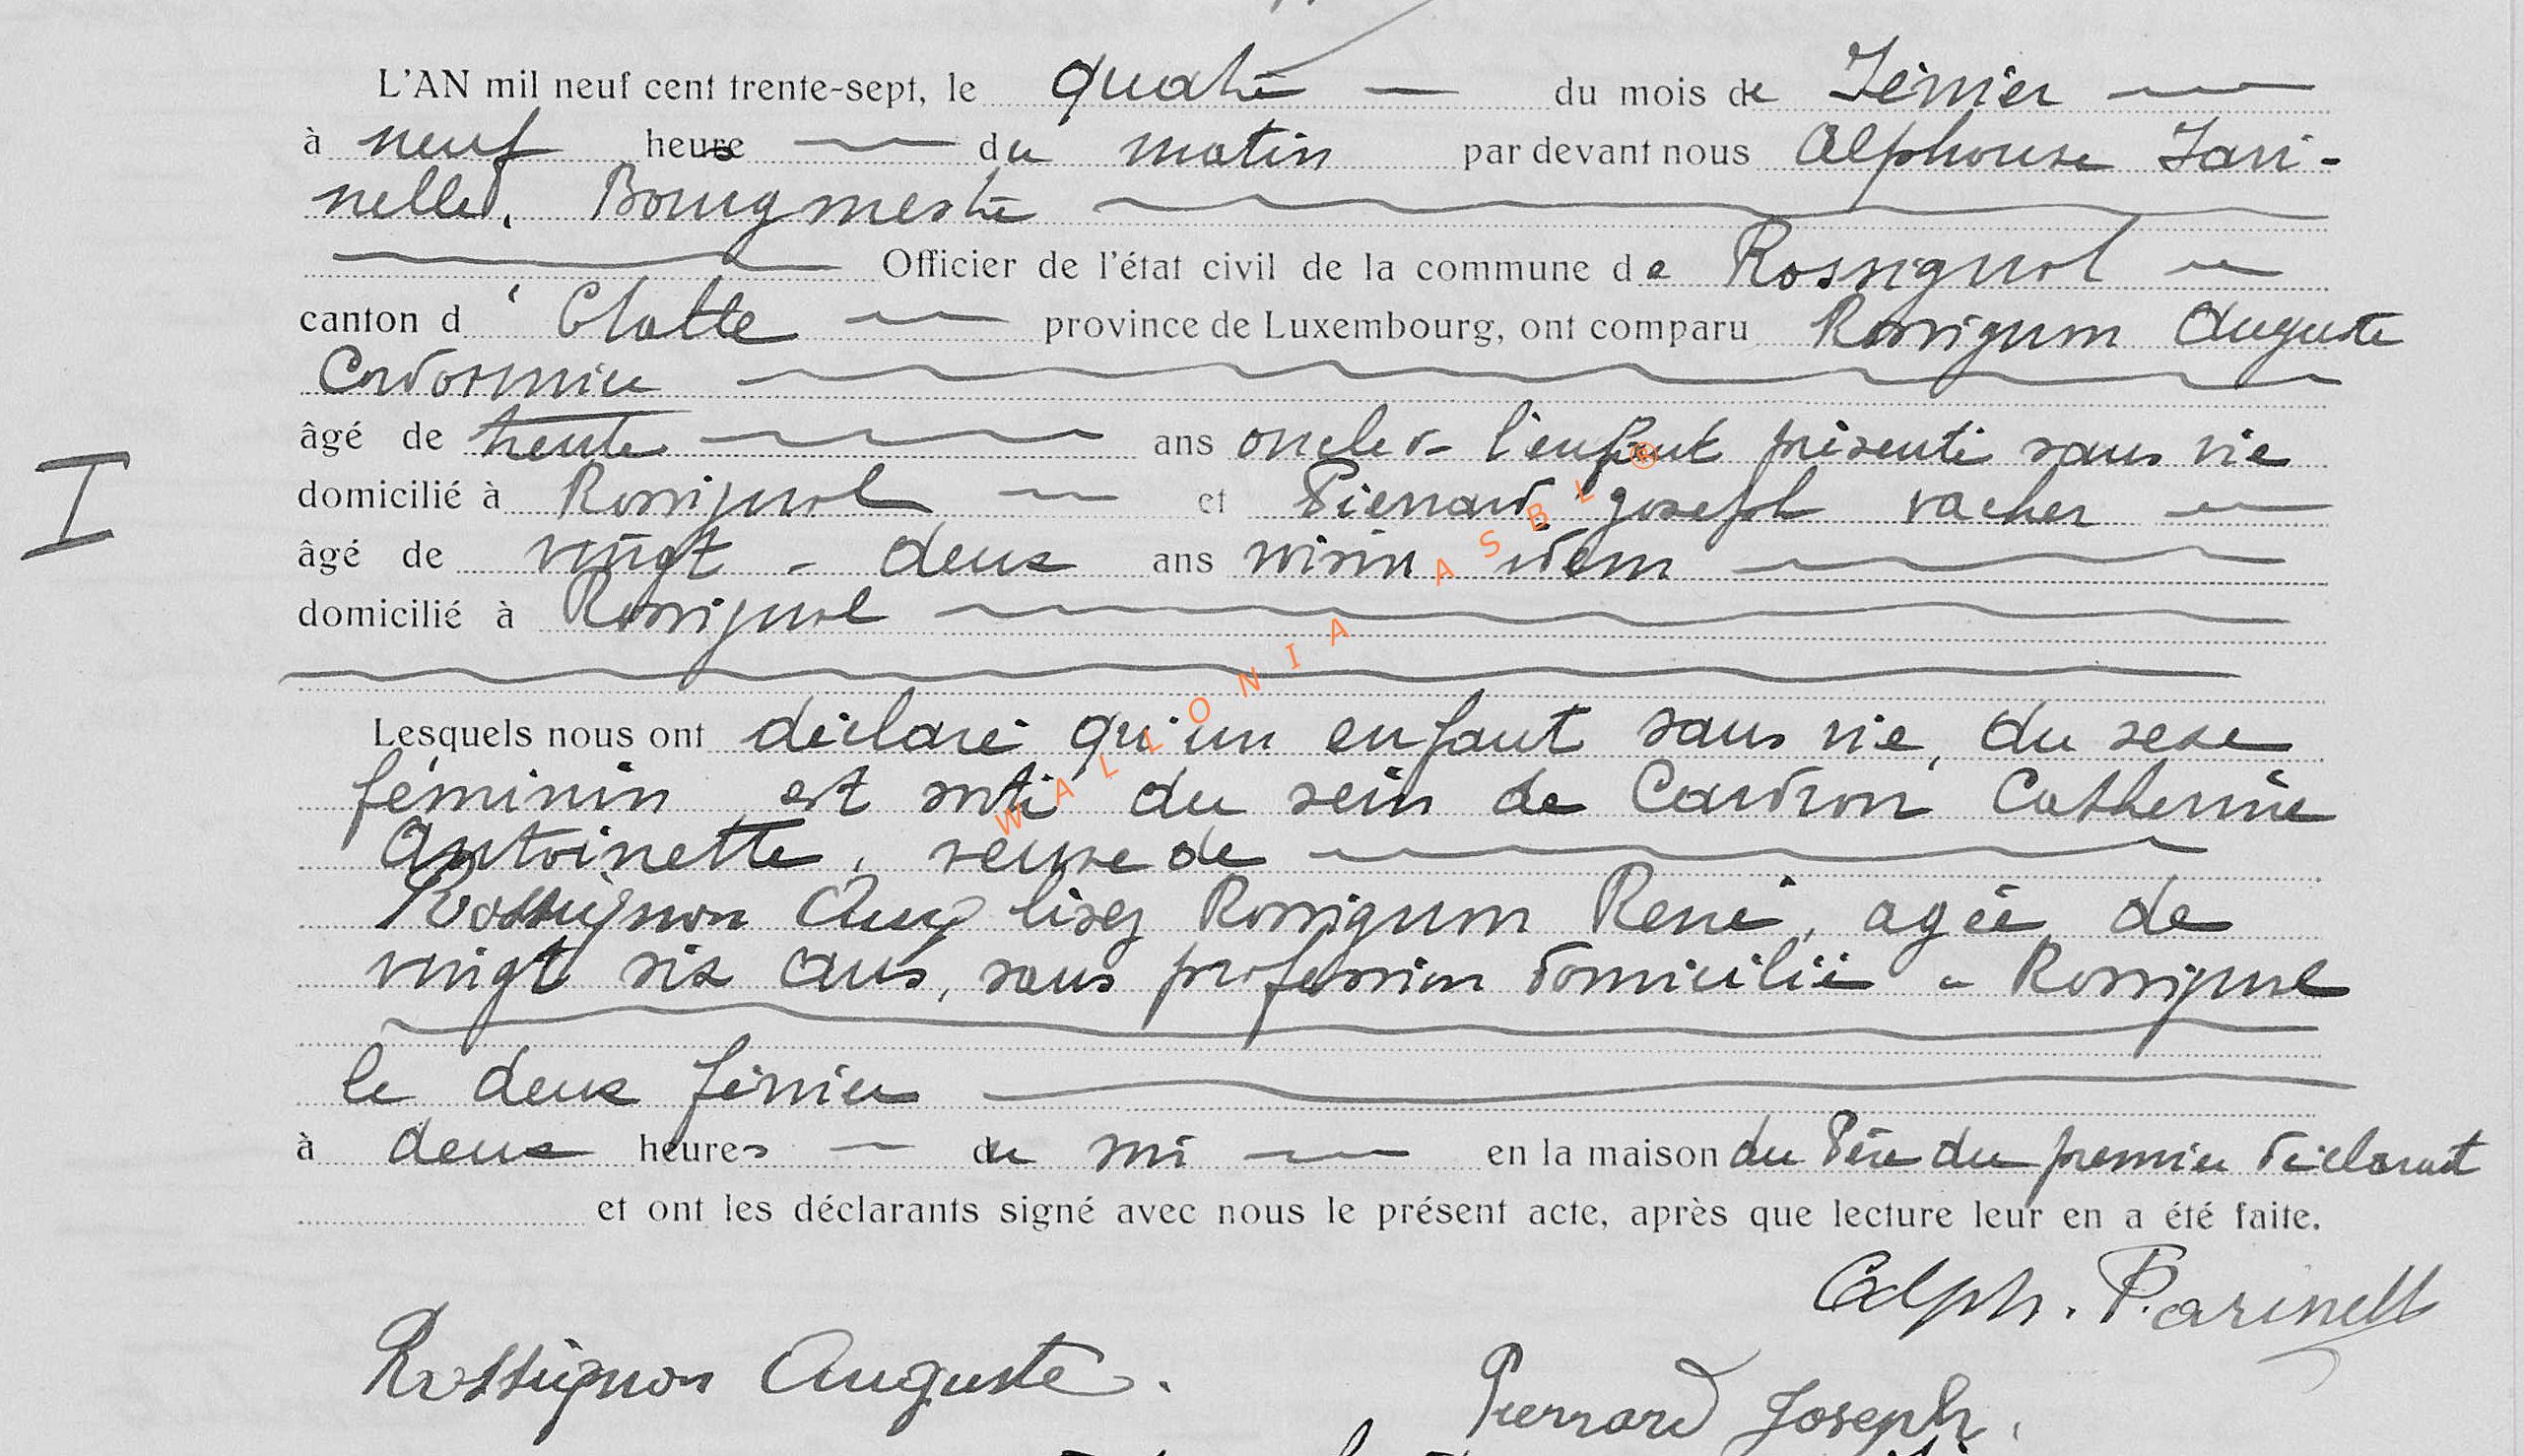 L'AN mil neuf cent trente-sept, le quatre du mois de Février
à neuf heures du matin par devant nous Alphonse Fari-
nelle, Bourgmestre
Officier de l'état civil de la commune de Rossignol
canton d'Etalle province de Luxembourg, ont comparu Rossignon Auguste
Cordonnier
âgé de trente ans oncle de l'enfant présenté sans vie
domicilié à Rossignol et Pierrard Joseph vacher
âgé de vingt-deux ans voisin idem
domicilié à Rossignol
Lesquels nous ont déclaré qu'un enfant sans vie, du sexe
féminin est sorti du sein de Cardron Catherine
Antoinette, veuve de
Rossignon Aug lisez Rossignon René, agée de
vingt six ans, sans profession domiciliée à Rossignol
le deux février
à deux heures du soir en la maison du Père du premier déclarant
et ont les déclarants signé avec nous le présent acte, après que lecture leur en a été faite.
Alph. Farinelle
Rossignon Auguste.
Pierrard Joseph.
I
WALLONIA ASBL ®